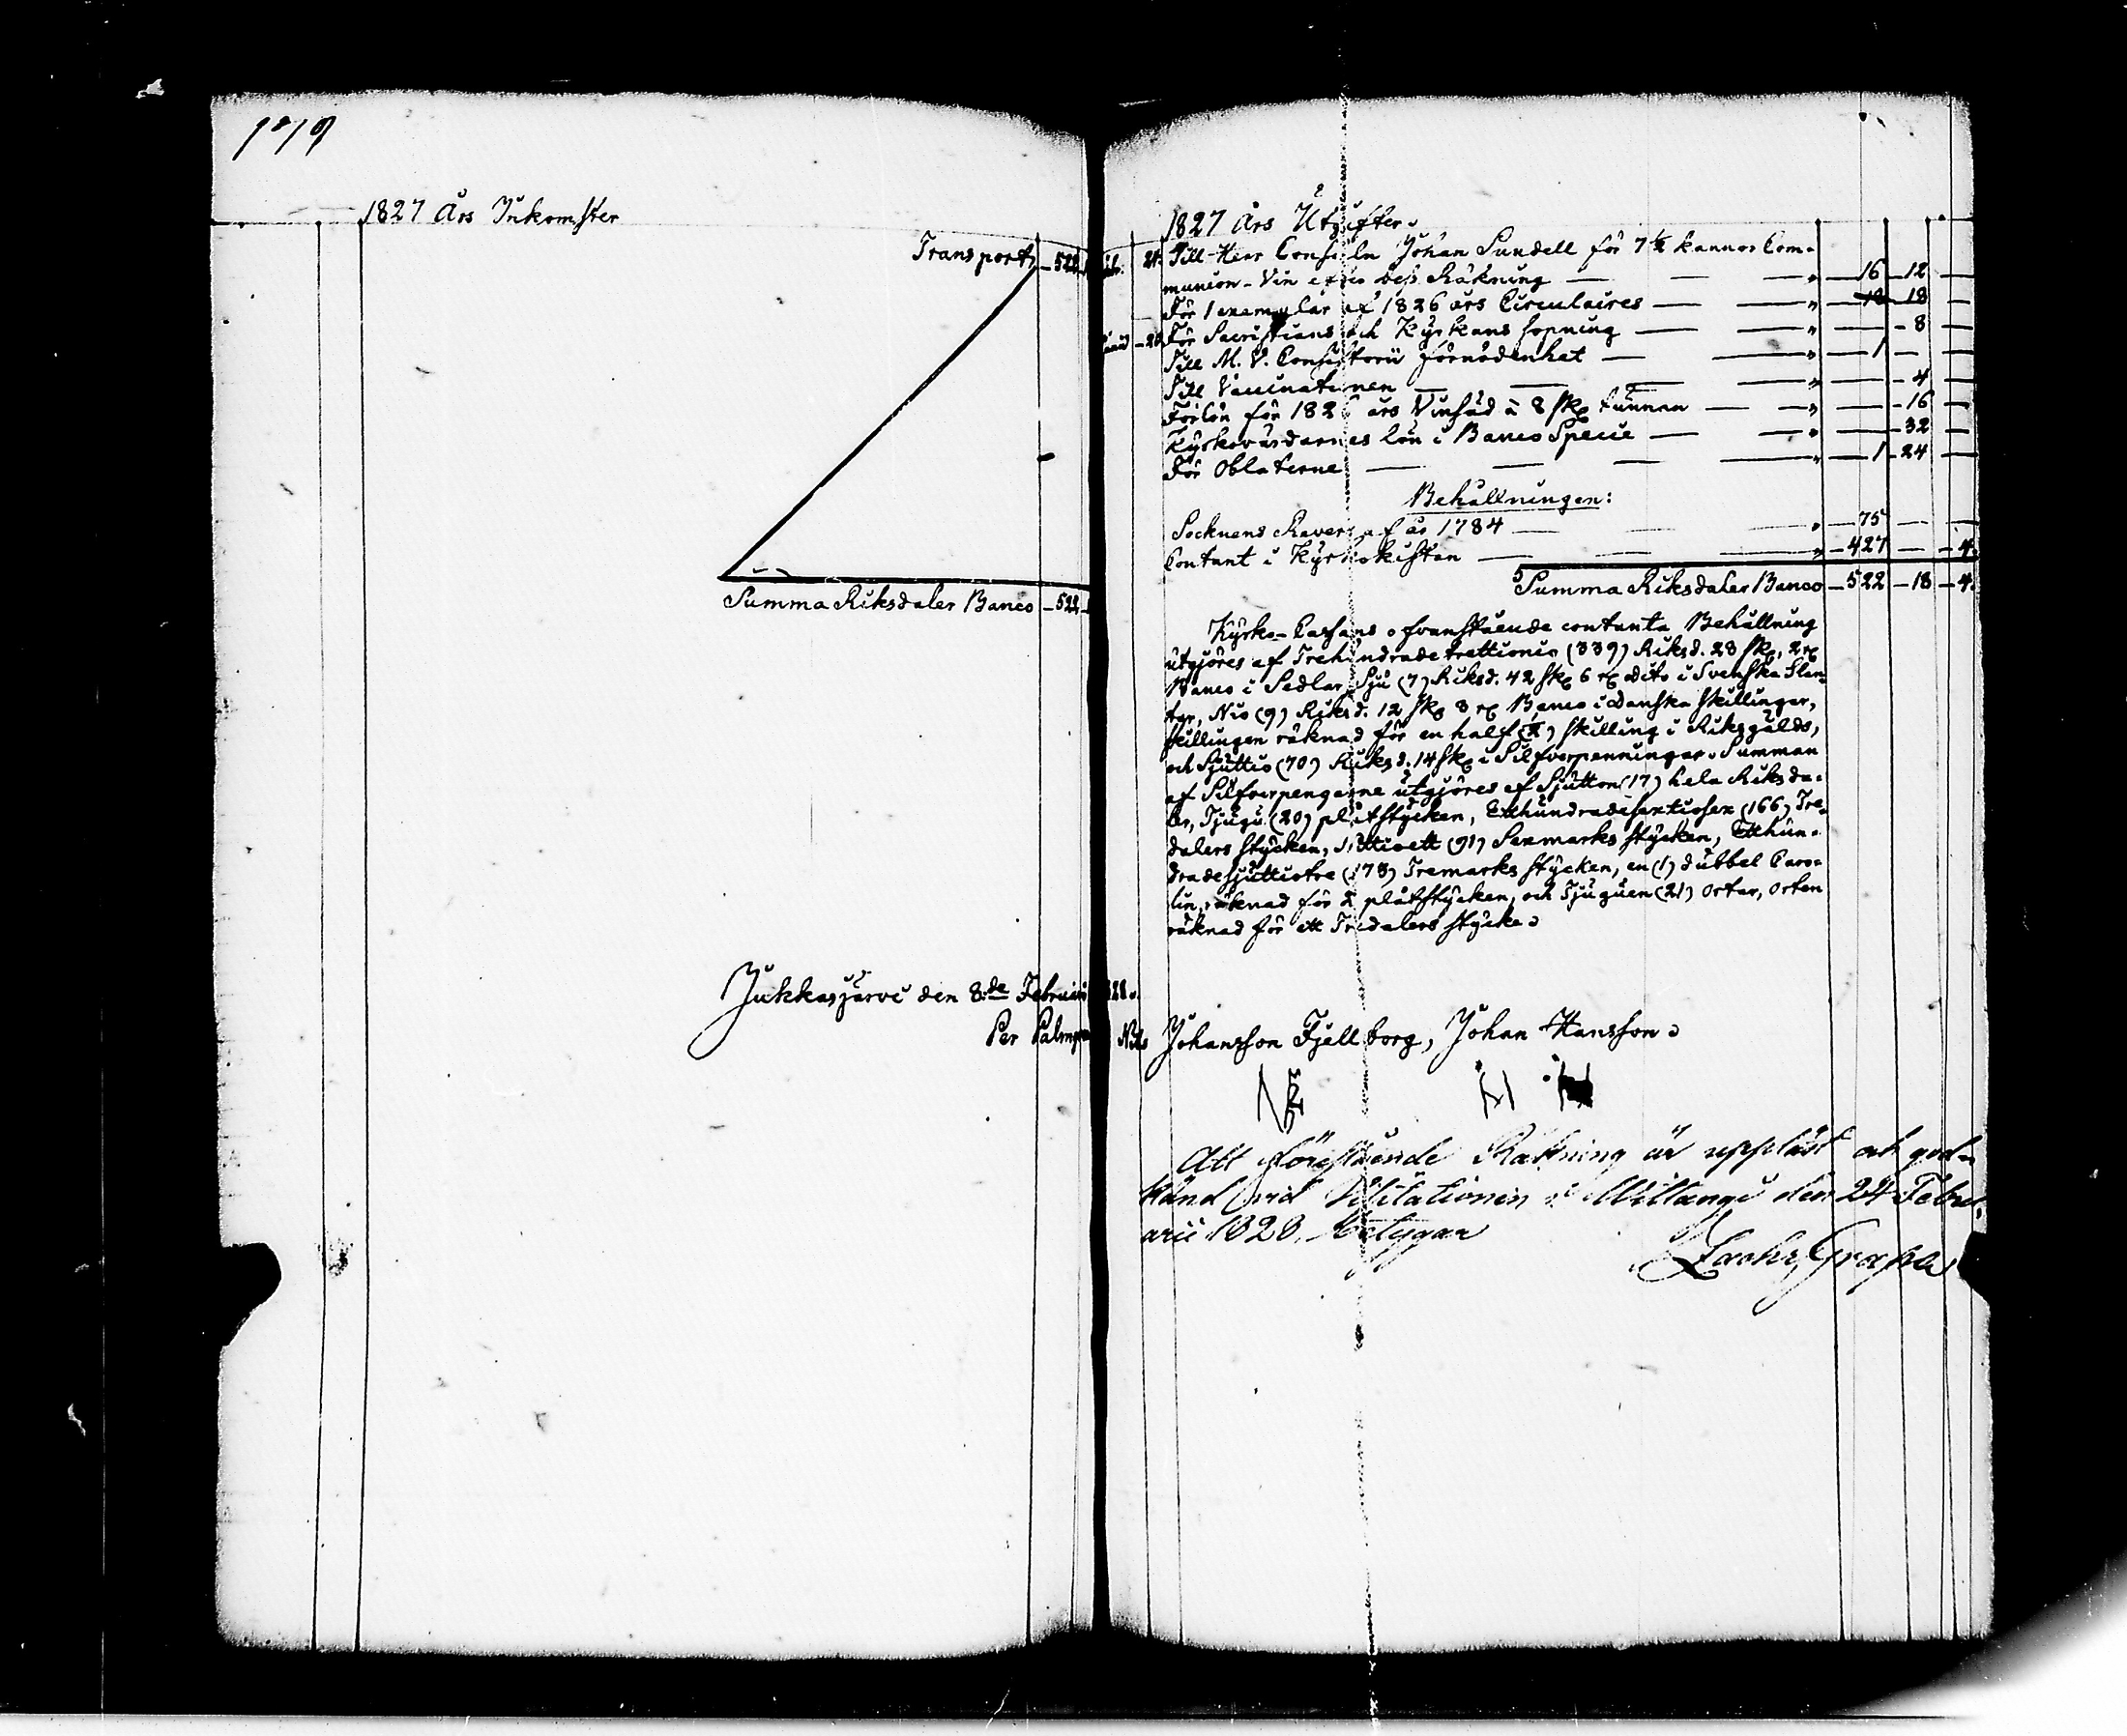 1827 Års Inkomster
Transport, 522
Summa Riksdaler Banco 522
Jukkasjärvi den 8:de Februarii
Per Palmgren
1827 Års Utgifter.
24. Till Herr Consuln Johan Sundell för 7½ kannor Com-
munion-Vin efter dess Räkning — — — " 16 12 —
För 1 exemplar af 1826 års Circulaires — — " — 18 —
För Sacristians och Kyrkans sopning — — " — 8 —
Till M. V. Consistorii förnödenhet — — " 1 — —
Till Vaccinationen — — — — " — 4 —
Forlön för 1826 års Vinsäd à 8 sk. tunnan — — " — 16 —
Kyrkovärdarnes lön i Banco Specie — — " — 32 —
För Oblaterne — — — — " 1 24 —
Behållningen:
Socknens Revers af år 1784 — — " 75 — —
Contant i Kyrkokistan — — — " 427 — 4.
Summa Riksdaler Banco 522 18 4.
Kyrko-Cassans ofvanstående contanta Behållning
utgjöres af Trehundradetrettionio (339) Riksd. 23 sk. 2 rst
Banco i Sedlar, Sju (7) Riksd. 42 sk. 6 rst dito i Svenska Slan-
tar, Nio (9) Riksd. 12 sk. 8 rst Banco i Danska Skillingar,
skillingen räknad för en half (½) skilling i Riksgälds,
och Sjuttio (70) Riksd. 14 sk. i Silfverpenningar. Summan
af Silfverpengarne utgjöres af Sjutton (17) hela Riksda-
ler, Tjugu (20) plåtstycken, Etthundradesextiosex (166) Tre-
dalers stycken, Nittioett (91) Sexmarks stycken, Etthun-
dradesjuttiotre (173) Tremarks stycken, en (1) dubbel Caro-
lin, räknad för 2 plåtstycken, och Tjuguen (21) Ortar, Orten
räknad för ett Tredalers stycke.
Nils Johansson Fjellborg, Johan Hansson.
Att förestående Räkning är uppläst och god-
känd vid Visitationen i Vittangi den 24 Febru-
arii 1828, betygar
Zachr. Grape